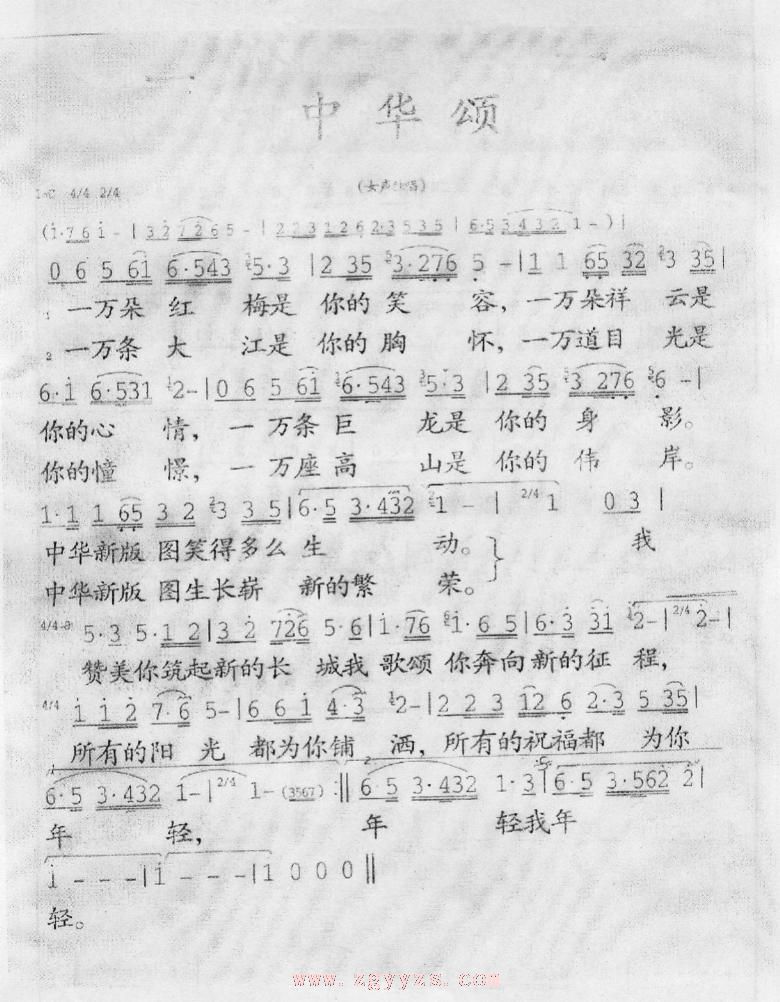 中华颂
(女声独唱)
1=C 4/4 2/4
(1·761-|327265-|2231262·3535|6·54321-)|
0 6 5 61 6·543 5·3 |2 35 3·276 5 -|1 1 65 32 3 35|
1 一万朵 红 梅是 你的 笑 容, 一万朵祥 云是
2 一万条 大 江是 你的 胸 怀, 一万道目 光是
6·1 6·531 2-|0 6 5 61 6·543 5·3 |2 35 3 276 6 -|
你的心 情, 一 万条 巨 龙是 你的 身 影。
你的憧 憬, 一 万座 高 山是 你的 伟 岸。
1·1 1 65 3 2 3 3 5|6·5 3·432 1 - | 2/4 1 0 3 |
中华新版 图笑得多么 生 动。 我
中华新版 图生长崭 新的繁 荣。
4/4 5·3 5·1 2|3 2 726 5·6|1·76 1·6 5|6·3 31 2-|2/4 2-|
赞美你筑起新的长 城我 歌颂 你奔向新的征 程,
4/4 1 1 2 7·6 5-|6 6 1 4·3 2-|2 2 3 12 6 2·3 5 35|
所有的阳 光 都为你铺 洒, 所有的祝福都 为你
6·5 3·432 1-|2/4 1-(3567):‖6·5 3·432 1·3|6·5 3·562 2|
年 轻, 年 轻我年
1 - - -|1 - - -|1 0 0 0‖
轻。
www.zgyyzs.com